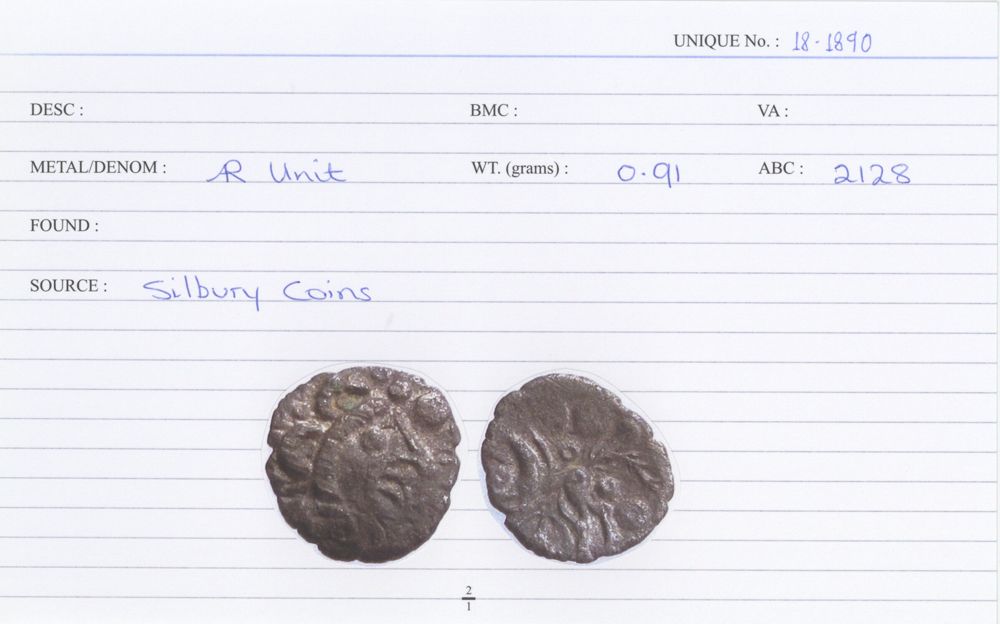 UNIQUE No. : 18-1890
DESC : BMC : VA :
METAL/DENOM : AR Unit WT. (grams) : 0.91 ABC : 2128
FOUND :
SOURCE : Silbury Coins
2
1